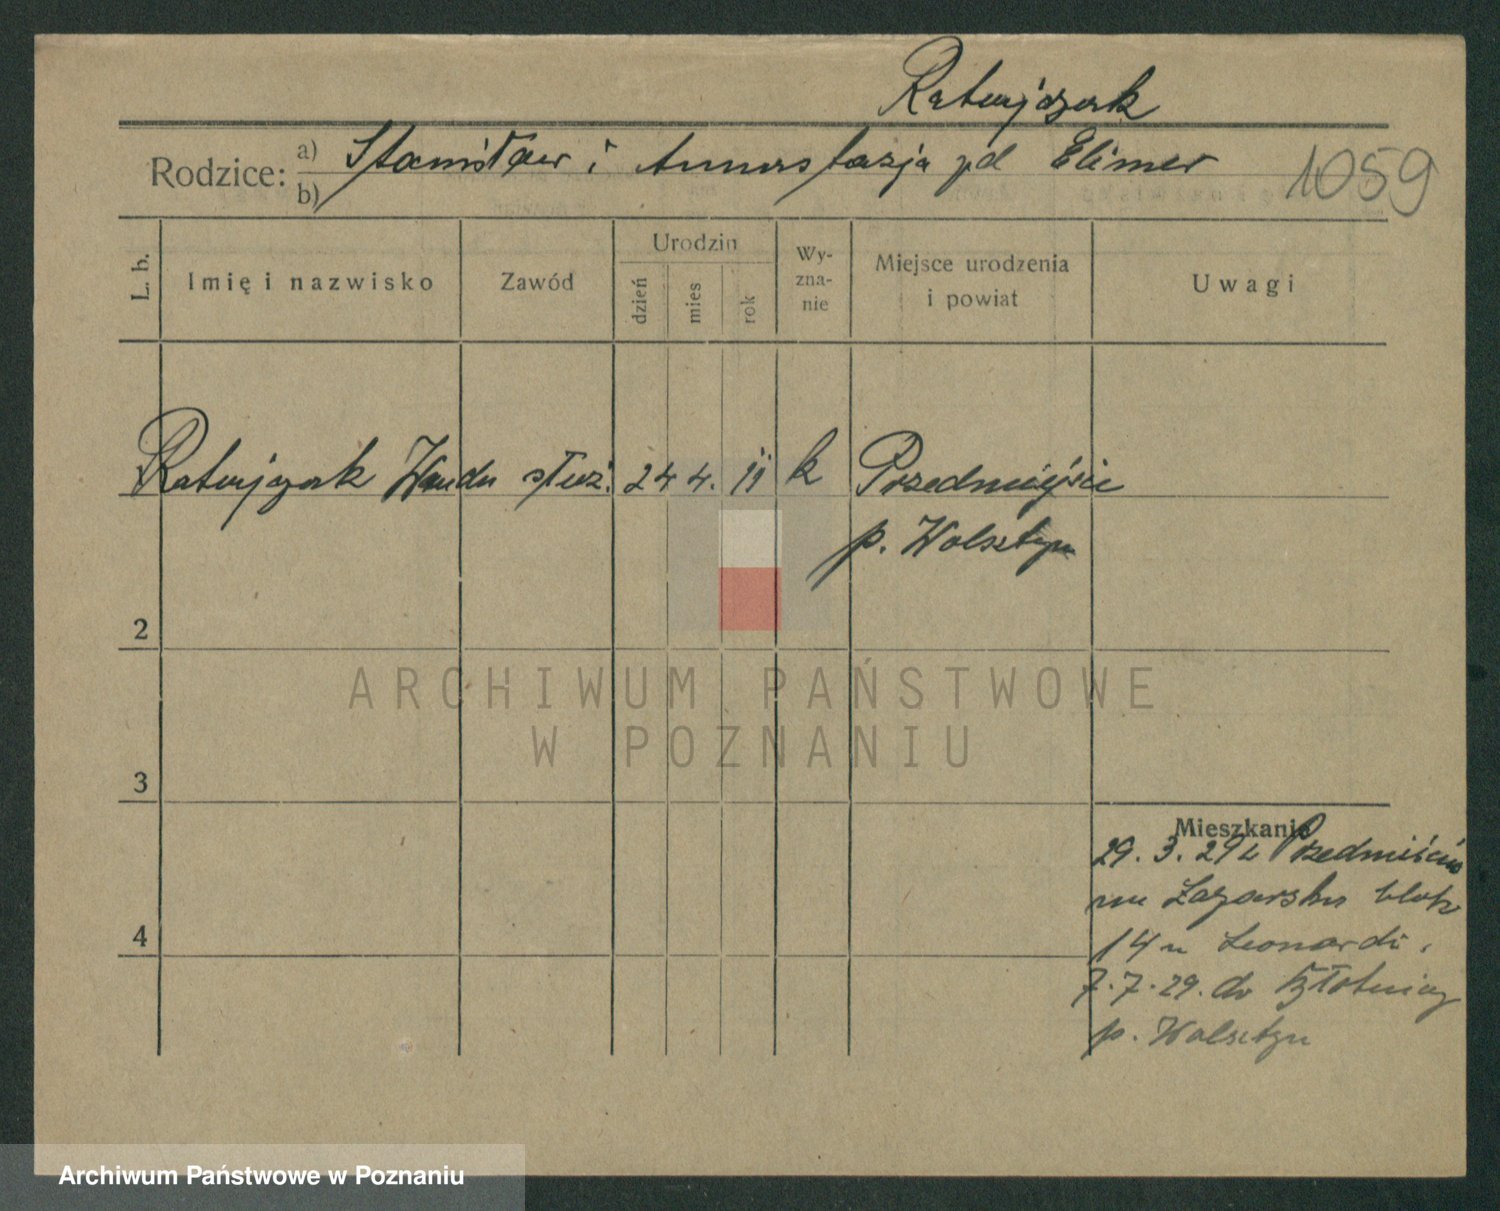 Ratajczak
Rodzice: a) Stanisław i Anastazja pd Elimer
b)
1059
L. b.
Imię i nazwisko
Zawód
Urodzin
dzień
mies
rok
Wy-
zna-
nie
Miejsce urodzenia
i powiat
Uwagi
Ratajczak Wanda służ. 24 4. 11 k Przedmieście
p. Wolsztyn
2
3
4
ARCHIWUM PAŃSTWOWE
W POZNANIU
Mieszkanie
29. 3. 29 z Przedmieścia
na Łazarska blok
14 u Leonardi.
7. 7. 29. do
p. Wolsztyn
Archiwum Państwowe w Poznaniu